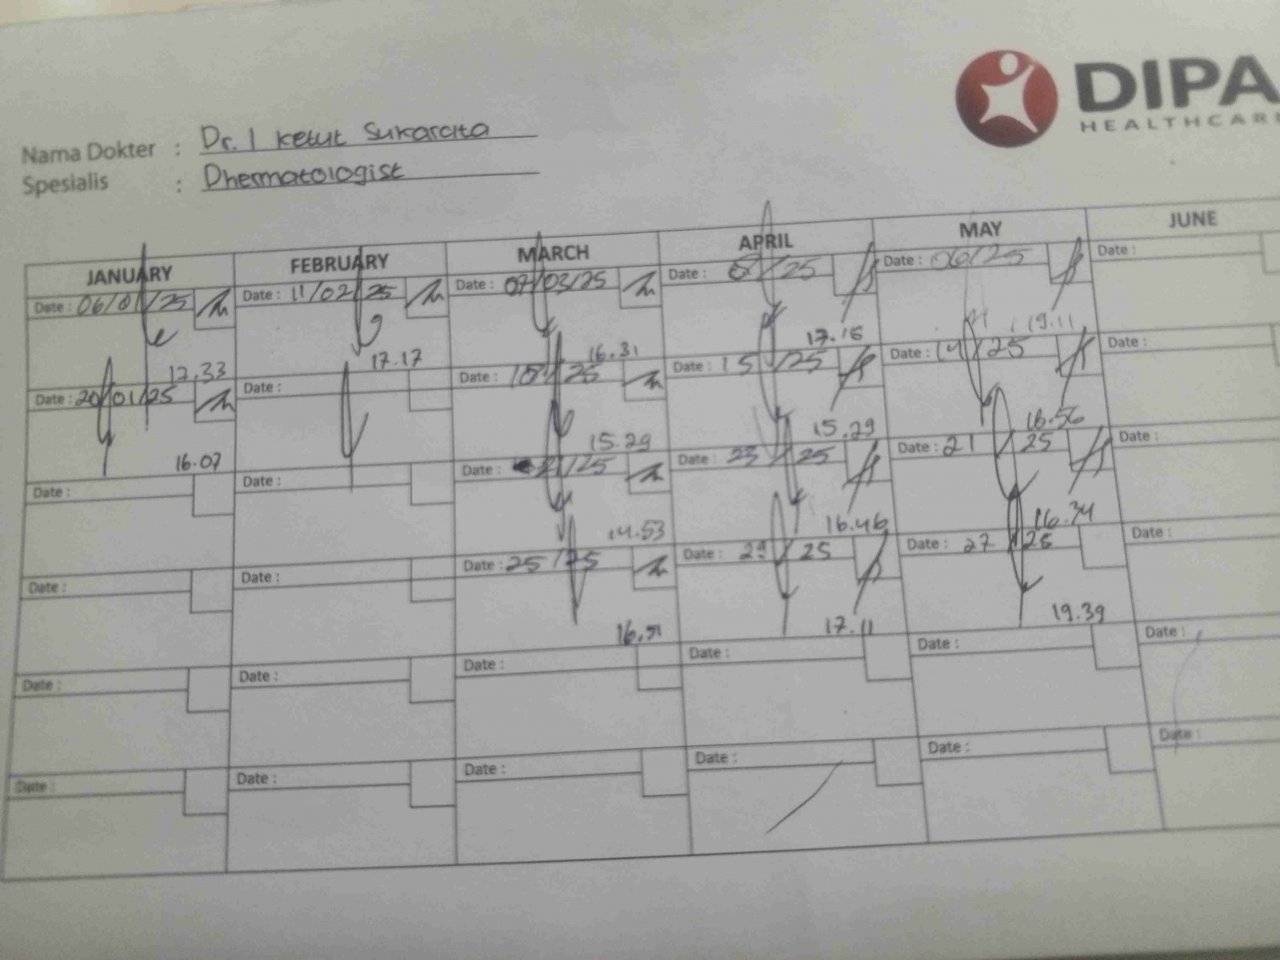 DIPA
HEALTHCARE
Nama Dokter : Dr. I Ketut Sukarcita
Spesialis : Dhermatologist
JANUARY FEBRUARY MARCH APRIL MAY JUNE
Date : 06/01/25 Date : 11/02/25 Date : 07/03/25 Date : 8/25 Date : 06/25 Date :
17.33 17.17 16.31 17.18 19.11
Date : 20/01/25 Date : Date : 25 Date : 15/25 Date : 14/25 Date :
16.07 15.29 15.29 16.56
Date : Date : Date : 21/25 Date : 23/25 Date : 21/25 Date :
14.53 16.46 16.34
Date : Date : Date : 25/25 Date : 29/25 Date : 27/25 Date :
17.11 19.39
Date : Date : Date : Date : Date : Date :
Date : Date : Date : Date : Date : Date :